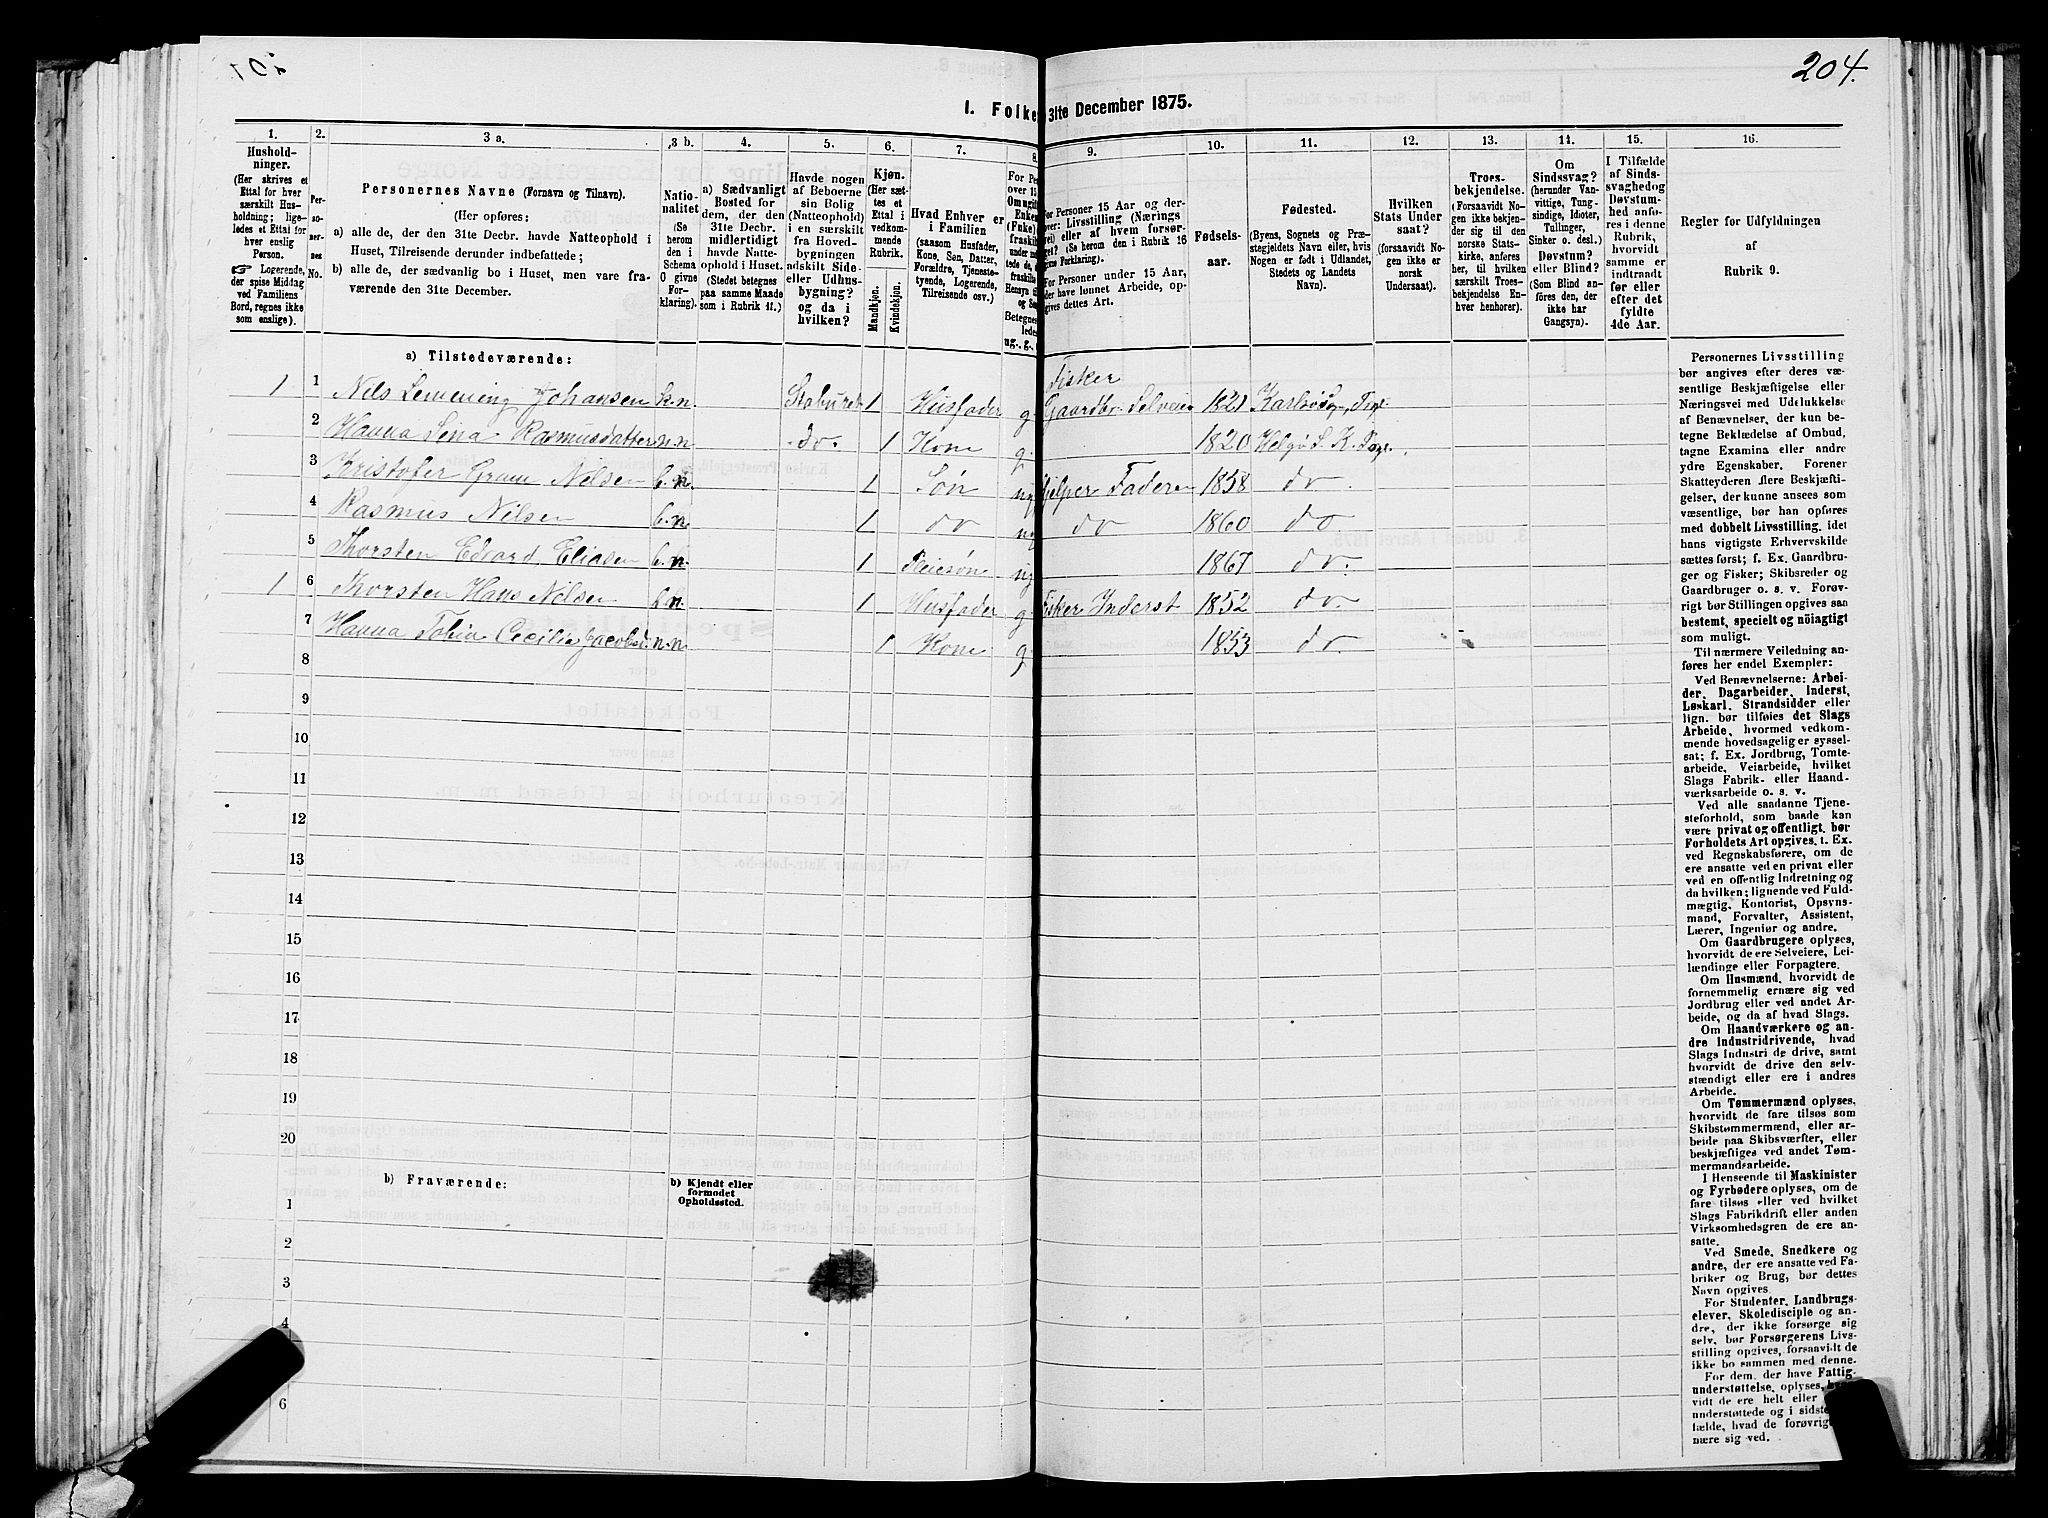 204.
I. Folke 31te December 1875.
1. 2. 3 a. 3 b. 4. 5. 6. 7. 8. 9. 10. 11. 12. 13. 14. 15. 16.
Husholdninger.
(Her skrives et
Ettal for hver
særskilt Husholdning;
ligeledes et Ettal for
hver enslig
Person.
☞ Logerende,
der spise Middag
ved Familiens
Bord, regnes ikke
som enslige).
Personernes
No.
Personernes Navne (Fornavn og Tilnavn).
(Her opføres:
a) alle de, der den 31te Decbr. havde Natteophold i
Huset, Tilreisende derunder indbefattede;
b) alle de, der sædvanlig bo i Huset, men vare fraværende
den 31te December.
Nationalitet
(Se
herom
den i
Schema
O givne
Forklaring).
a) Sædvanligt
Bosted for
dem, der den
31te Decbr.
midlertidigt
havde Natteophold
i Huset.
(Stedet betegnes
paa samme Maade
som i Rubrik 11.)
Havde nogen
af Beboerne
sin Bolig
(Natteophold)
i en særskilt
fra Hovedbygningen
adskilt Side- eller
Udhusbygning?
og da i
hvilken?
Kjøn.
(Her sættes
et
Ettal i
vedkommende
Rubrik.
Mandkjøn.
Kvindekjøn.
Hvad Enhver er
i Familien
(saasom Husfader,
Kone, Søn, Datter,
Forældre, Tjenestetyende,
Logerende,
Tilreisende osv.)
ug., g.,
For Personer 15 Aar og derover:
Livsstilling (Næringsvei)
eller af hvem forsørget?
(Se herom den i Rubrik 16
givne Forklaring).
For Personer under 15 Aar,
der have lønnet Arbeide, opgives
dettes Art.
Fødselsaar.
Fødested.
(Byens, Sognets og Præstegjeldets
Navn eller, hvis
Nogen er født i Udlandet,
Stedets og Landets
Navn).
Hvilken
Stats Undersaat?
(forsaavidt Nogen
ikke er
norsk
Undersaat).
Troesbekjendelse.
(Forsaavidt Nogen
ikke bekjender
sig til den
norske Statskirke,
anføres
her, til hvilken
særskilt Troesbekjendelse
Enhver
henhorer).
Om
Sindssvag?
(herunder Vanvittige,
Tungsindige,
Idioter,
Tullinger,
Sinker o. desl.)
Døvstum?
eller Blind?
(Som Blind anføres
den, der
ikke har
Gangsyn).
I Tilfælde
af Sindssvaghed og
Døvstumhed
anføres
i denne
Rubrik,
hvorvidt
samme er
indtraadt
før eller
efter det
fyldte
4de Aar.
Regler for Udfyldningen
af
Rubrik 9.
a) Tilstedeværende:
Fisker
1 1 Nils Lemming Johansen k.n. Staburet 1 Husfader g. Gaardbr. Selveier 1821
2 Hanna Sina Rasmusdatter n.n. do. 1 Kone g. 1820 Helgø S. K.
3 Kristofer Gram Nilsen b.n. 1 Søn ug Hjelper Faderen 1858 do.
4 Rasmus Nilsen b.n. 1 do ug do 1860 do.
5 Thorsten Edvard Eliasen b.n. 1 Pleiesøn ug 1867 do.
1 6 Thorsten Hans Nilsen b.n. 1 Husfader g. Fisker Inderst 1852 do.
7 Hanna Cecilie Jacobsd. n.n. 1 Kone g. 1853 do.
8
9
10
11
12
13
14
15
16
17
18
19
20
b) Fraværende:
b) Kjendt eller
formodet
Opholdssted.
1
2
3
4
6
Personernes Livsstilling
bør angives efter deres væsentlige
Beskjæftigelse eller
Næringsvei med Udelukkelse
af Benævnelser, der kun betegne
Beklædelse af Ombud,
tagne Examina eller andre
ydre Egenskaber. Forener
Skatteyderen flere Beskjæftigelser,
der kunne ansees som
væsentlige, bør han opføres
med dobbelt Livsstilling, idet
hans vigtigste Erhvervskilde
sættes først; f. Ex. Gaardbruger
og Fisker; Skibsreder og
Gaardbruger o. s. v. Forøvrigt
bør Stillingen opgives saa
bestemt, specielt og nöiagtigt
som muligt.
Til nærmere Veiledning anføres
her endel Exempler:
Ved Benævnelserne: Arbeider,
Dagarbeider, Inderst,
Løskarl, Strandsidder eller
lign. bør tilføies det Slags
Arbeide, hvormed vedkommende
hovedsagelig er sysselsat;
f. Ex. Jordbrug, Tomtearbeide,
Veiarbeide, hvilket
Slags Fabrik- eller Haandværksarbeide
o. s. v.
Ved alle saadanne Tjenesteforhold,
som baade kan
være privat og offentligt, bør
Forholdets Art opgives, f. Ex.
ved Regnskabsførere, om de
ere ansatte ved en privat eller
ved en offentlig Indretning og
da hvilken; lignende ved Fuldmægtig,
Kontorist, Opsynsmand,
Forvalter, Assistent,
Lærer, Ingeniør og andre.
Om Gaardbrugere oplyses,
hvorvidt de ere Selveiere, Leilændinge
eller Forpagtere.
Om Husmænd, hvorvidt de
fornemmelig ernære sig ved
Jordbrug eller ved andet Arbeide,
og da af hvad Slags.
Om Haandværkere og andre
Industridrivende, hvad
Slags Industri de drive, samt
hvorvidt de drive den selvstændigt
eller ere i andres
Arbeide.
Om Tømmermænd oplyses,
hvorvidt de fare tilsøs som
Skibstømmermænd, eller arbeide
paa Skibsværfter, eller
beskjæftiges ved andet Tømmermandsarbeide.
I Henseende til Maskinister
og Fyrbødere oplyses, om de
fare tilsøs eller ved hvilket
Slags Fabrikdrift eller anden
Virksomhedsgren de ere ansatte.
Ved Smede, Snedkere og
andre, der ere ansatte ved Fabriker
og Brug, bør dettes
Navn opgives.
For Studenter, Landbrugselever,
Skoledisciple og andre,
der ikke forsørge sig
selv, bør Forsørgerens Livsstilling
opgives, forsaavidt de
ikke bo sammen med denne.
For dem, der have Fattigunderstøttelse,
oplyses,
vidt de ere helt eller
understøttede og i sidste
lælde, hvad de forøvrigt
nære sig ved.